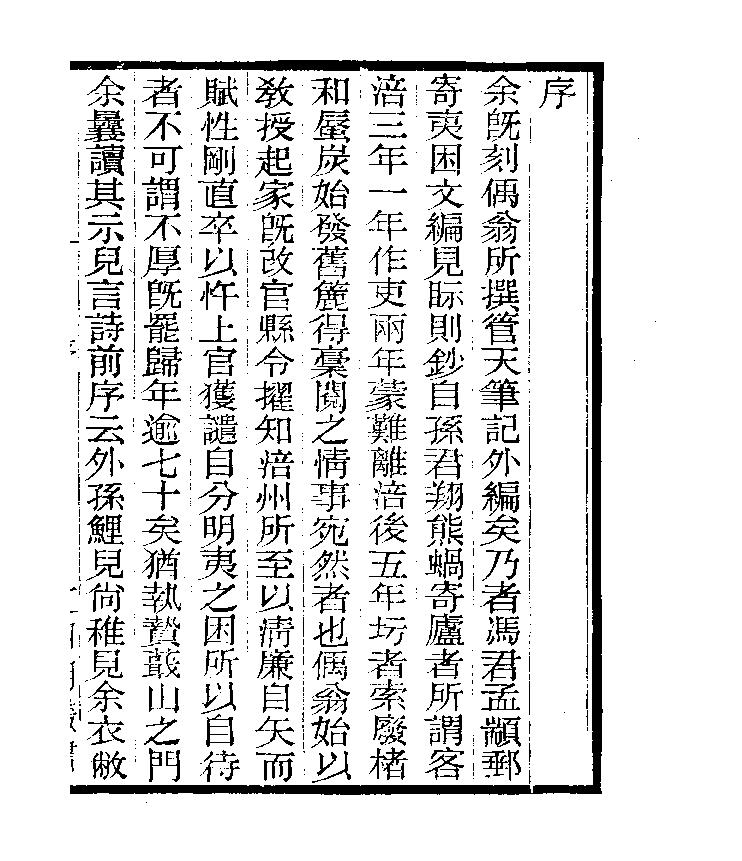 序
余旣刻偶翁所撰管天筆記外編矣乃者馮君孟顓郵
寄夷困文編見眎則鈔自孫君翔熊蝸寄廬者所謂客
涪三年一年作吏兩年蒙難離涪後五年圬者索廢楮
和蜃炭始發舊簏得稾閱之情事宛然者也偶翁始以
敎授起家旣改官縣令擢知涪州所至以淸廉自矢而
賦性剛直卒以忤上官獲譴自分明夷之困所以自待
者不可謂不厚旣罷歸年逾七十矣猶執贄蕺山之門
余曩讀其示兒言詩前序云外孫鯉兒尙稚見余衣敝